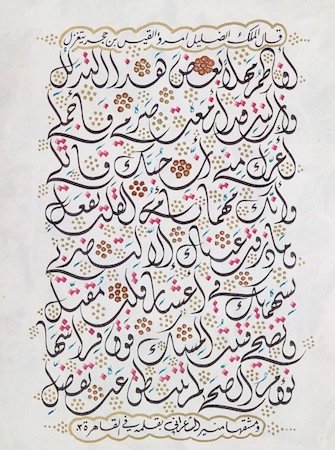 قال الملك الضليل امرؤ القيس بن حجر يتغزل
أفاطم مهلا بعض هذا التدلل
وإن كنت قد أزمعت صرمي فأجملي
أغرك مني أن حبك قاتلي
وأنك مهما تأمري القلب يفعل
وما ذرفت عيناك إلا لتضربي
بسهميك في أعشار قلب مقتل
وتضحي فتيت المسك فوق فراشها
نؤوم الضحى لم تنتطق عن تفضل
ومشقها منير الشعراني بقلمه في القاهرة